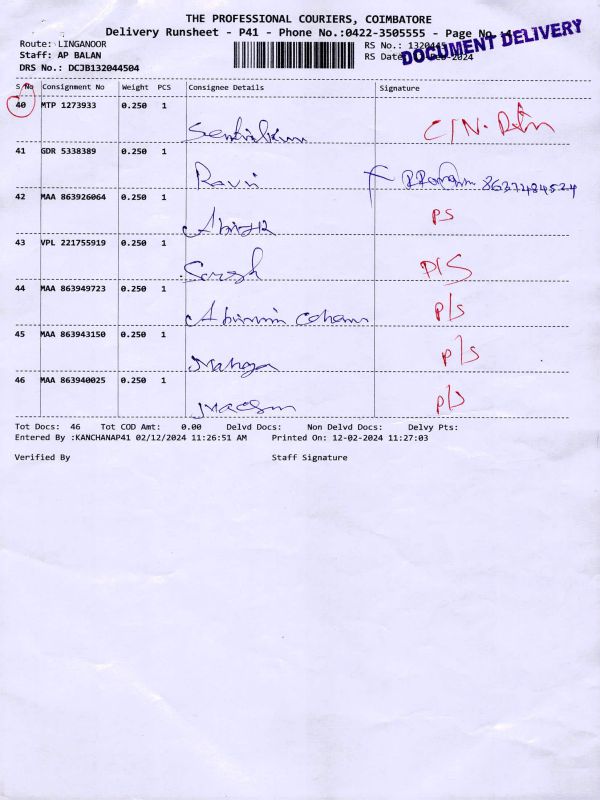 THE PROFESSIONAL COURIERS, COIMBATORE
Delivery Runsheet - P41 - Phone No.:0422-3505555 - Page No.
DOCUMENT DELIVERY
Route: LINGANOOR RS No.: 1320445
Staff: AP BALAN RS Date 2024
DRS No.: DCJB132044504
S/No Consignment No Weight PCS Consignee Details Signature
40 MTP 1273933 0.250 1
C/N. Rtn
41 GDR 5338389 0.250 1
Ravi 8637484524
42 MAA 863926064 0.250 1
PS
43 VPL 221755919 0.250 1
Suresh P/S
44 MAA 863949723 0.250 1
P/S
45 MAA 863943150 0.250 1
P/S
46 MAA 863940025 0.250 1
P/S
Tot Docs: 46 Tot COD Amt: 0.00 Delvd Docs: Non Delvd Docs: Delvy Pts:
Entered By :KANCHANAP41 02/12/2024 11:26:51 AM Printed On: 12-02-2024 11:27:03
Verified By Staff Signature